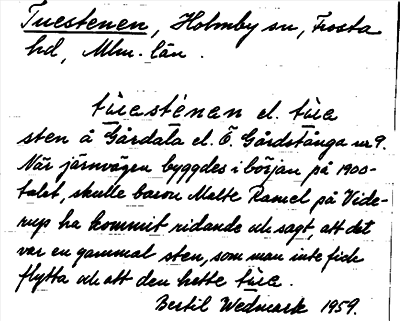 Tuestenen, Holmby sn, Frosta
hd, Mlm. län.
tùestènen el. tùe
sten å Gårdala el. Ö. Gårdstånga nr 9.
När järnvägen byggdes i början på 1900-
talet, skulle baron Malte Ramel på Vide-
rup ha kommit ridande och sagt, att det
var en gammal sten, som man inte fick
flytta och att den hette tùe.
Bertil Wedmark 1959.